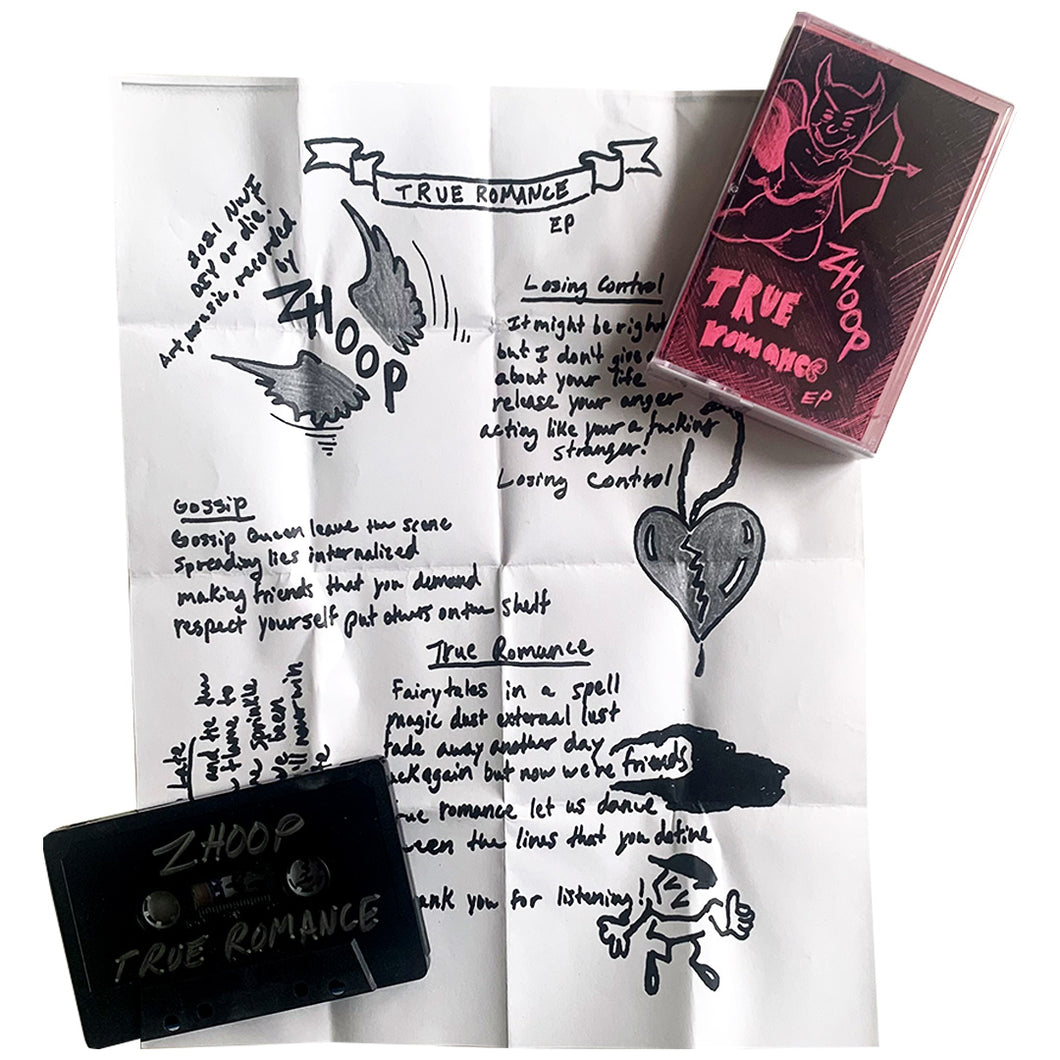 TRUE ROMANCE
EP
2021 NWI
DIY or die.
Art, music, recorded
by
ZHOOP
Losing Control
It might be right
but I don't give a
about your life
release your anger
acting like your a fucking
stranger!
Losing Control
Gossip
Gossip Queen leave the scene
spreading lies internalized
making friends that you demand
respect yourself put others on the shelf
True Romance
Fairytales in a spell
magic dust external lust
fade away another day
again but now we're friends
romance let us dance
the lines that you define
you for listening!
Late
and tie the
flame to
sprinkle
been
never win
ZHOOP
TRUE
romance
EP
ZHOOP
TRUE ROMANCE